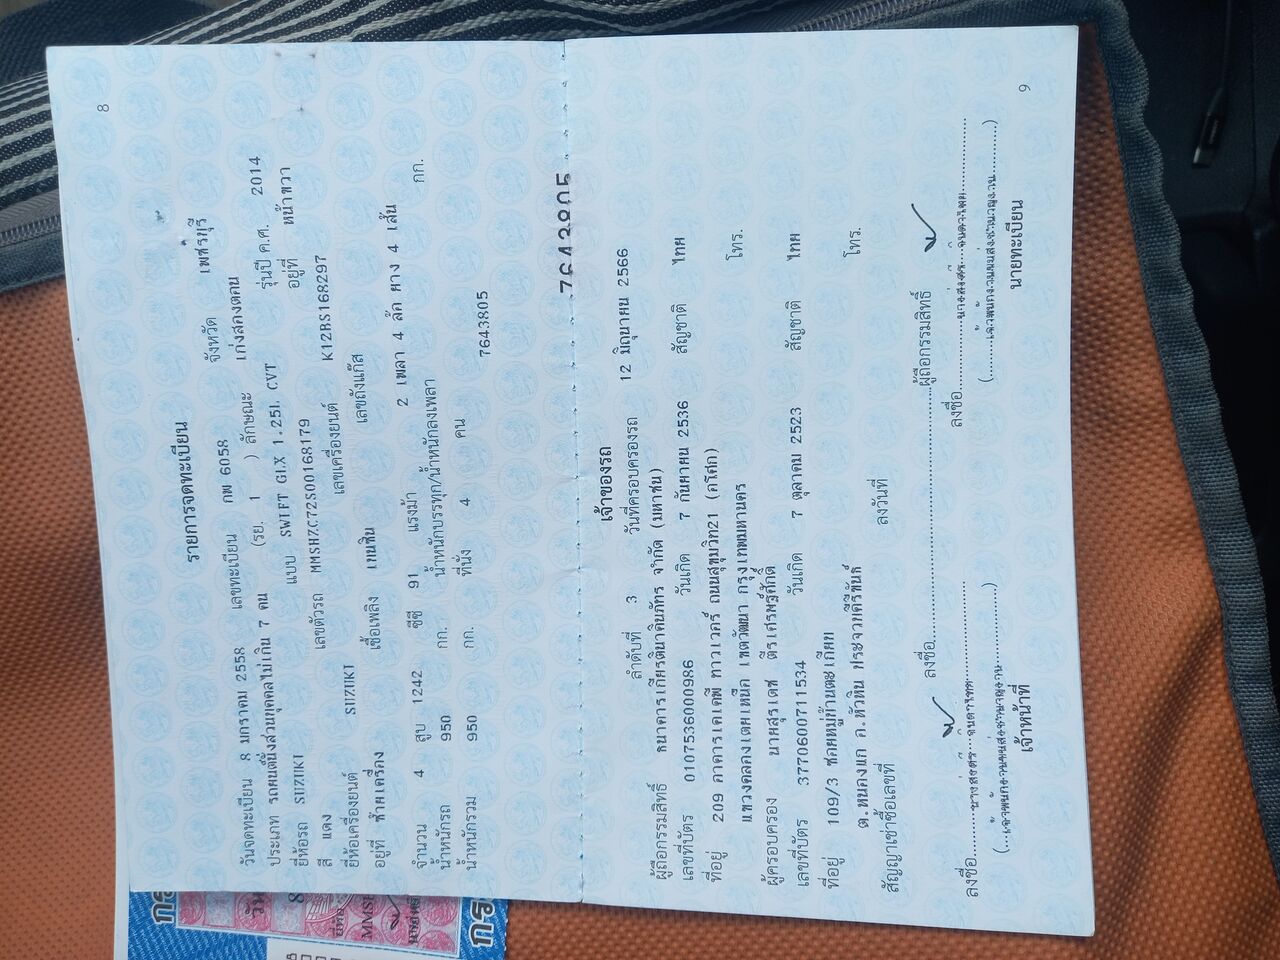 8
รายการจดทะเบียน
วันจดทะเบียน 8 มกราคม 2558 เลขทะเบียน กพ 6058 จังหวัด เพชรบุรี
ประเภท รถยนต์นั่งส่วนบุคคลไม่เกิน 7 คน (รย. 1 ) ลักษณะ เก๋งสองตอน
ยี่ห้อรถ SUZUKI แบบ SWIFT GLX 1.25L CVT รุ่นปี ค.ศ. 2014
สี แดง เลขตัวรถ MMSHZC72S00168179 อยู่ที่ หน้าขวา
ยี่ห้อเครื่องยนต์ SUZUKI เลขเครื่องยนต์ K12BS168297
อยู่ที่ ท้ายเครื่อง เชื้อเพลิง เบนซิน เลขถังแก๊ส
จำนวน 4 สูบ 1242 ซีซี 91 แรงม้า 2 เพลา 4 ล้อ ยาง 4 เส้น
น้ำหนักรถ 950 กก. น้ำหนักบรรทุก/น้ำหนักลงเพลา กก.
น้ำหนักรวม 950 กก. ที่นั่ง 4 คน 7643805
เจ้าของรถ
ลำดับที่ 3 วันที่ครอบครองรถ 12 มิถุนายน 2566
ผู้ถือกรรมสิทธิ์ ธนาคารเกียรตินาคินภัทร จำกัด (มหาชน)
เลขที่บัตร 0107536000986 วันเกิด 7 กันยายน 2536 สัญชาติ ไทย
ที่อยู่ 209 อาคารเคเคพี ทาวเวอร์ ถนนสุขุมวิท21 (อโศก)
แขวงคลองเตยเหนือ เขตวัฒนา กรุงเทพมหานคร โทร.
ผู้ครอบครอง นายสุรเดช ตีรเศรษฐ์ศักดิ์
เลขที่บัตร 3770600711534 วันเกิด 7 ตุลาคม 2523 สัญชาติ ไทย
ที่อยู่ 109/3 ซอยหมู่บ้านตะเกียบ
ต.หนองแก อ.หัวหิน ประจวบคีรีขันธ์ โทร.
สัญญาเช่าซื้อเลขที่ ลงวันที่
ลงชื่อ ผู้ถือกรรมสิทธิ์
ลงชื่อ ลงชื่อ
เจ้าหน้าที่ นายทะเบียน
9
MMSH
กรม